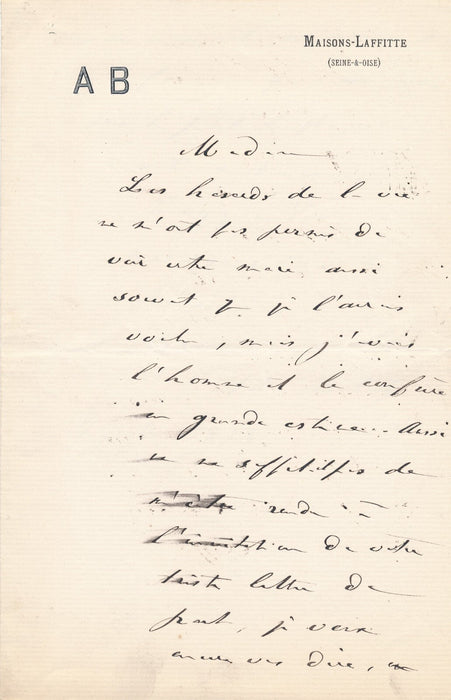 MAISONS-LAFFITTE
(SEINE-&-OISE)
A B
Madame
Les hasards de la vie
ne m'ont pas permis de
voir votre mari aussi
souvent que je l'aurais
voulu, mais j'avais
l'homme et le confrère
en grande estime. Aussi
ne me suffit-il pas de
m'être rendu à
l'invitation de votre
triste lettre de
part, je veux
encore vous dire,